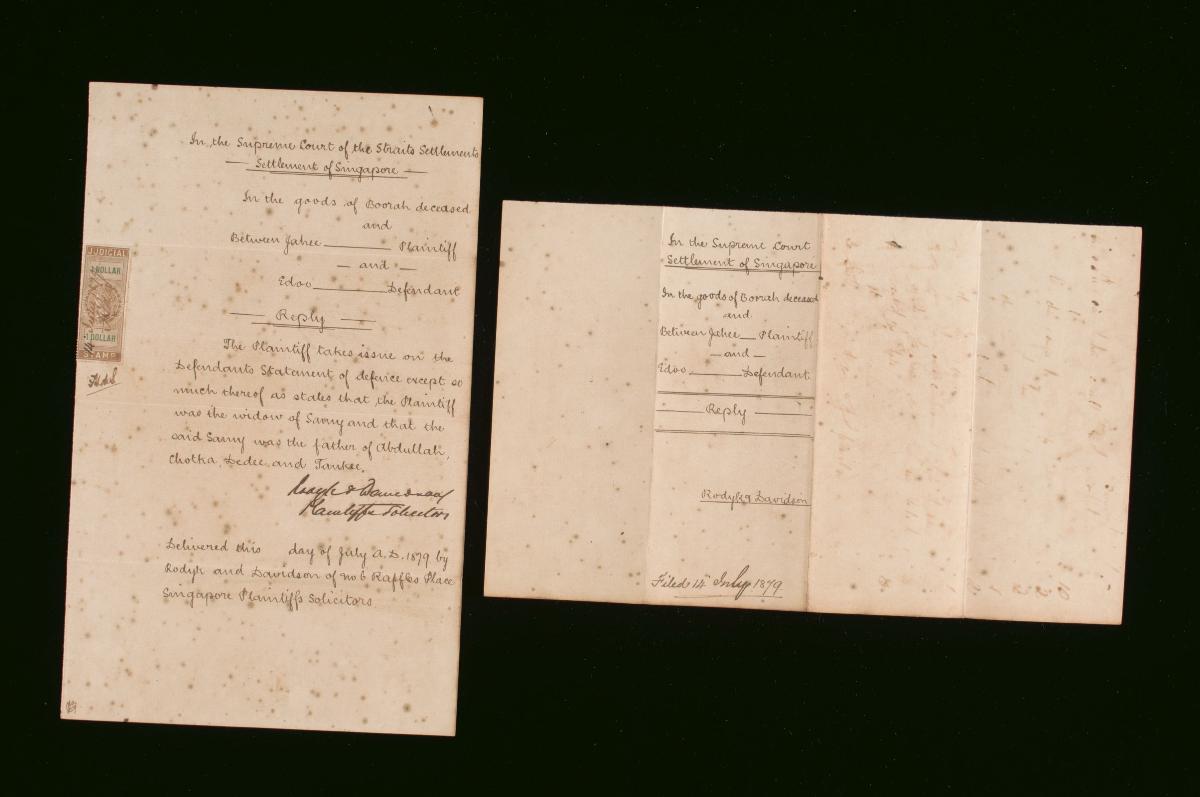 In the Supreme Court of the Straits Settlements
Settlement of Singapore
In the goods of Boorah deceased
and
Between Jahee Plaintiff
and
Edoo Defendant
Reply
The Plaintiff takes issue on the
Defendants Statement of defence except so
much thereof as states that the Plaintiff
was the widow of Samy and that the
said Samy was the father of Abdullah,
Chotka, Dedee and Tankee.
Rodyk & Davidson
Plaintiffs Solicitors
Delivered this day of July A.D. 1879 by
Rodyk and Davidson of No 6 Raffles Place
Singapore Plaintiffs Solicitors
JUDICIAL
1 DOLLAR
1 DOLLAR
STAMP
In the Supreme Court
Settlement of Singapore
In the goods of Boorah deceased
and
Between Jahee Plaintiff
and
Edoo Defendant
Reply
Rodyk & Davidson
Filed 14th July 1879